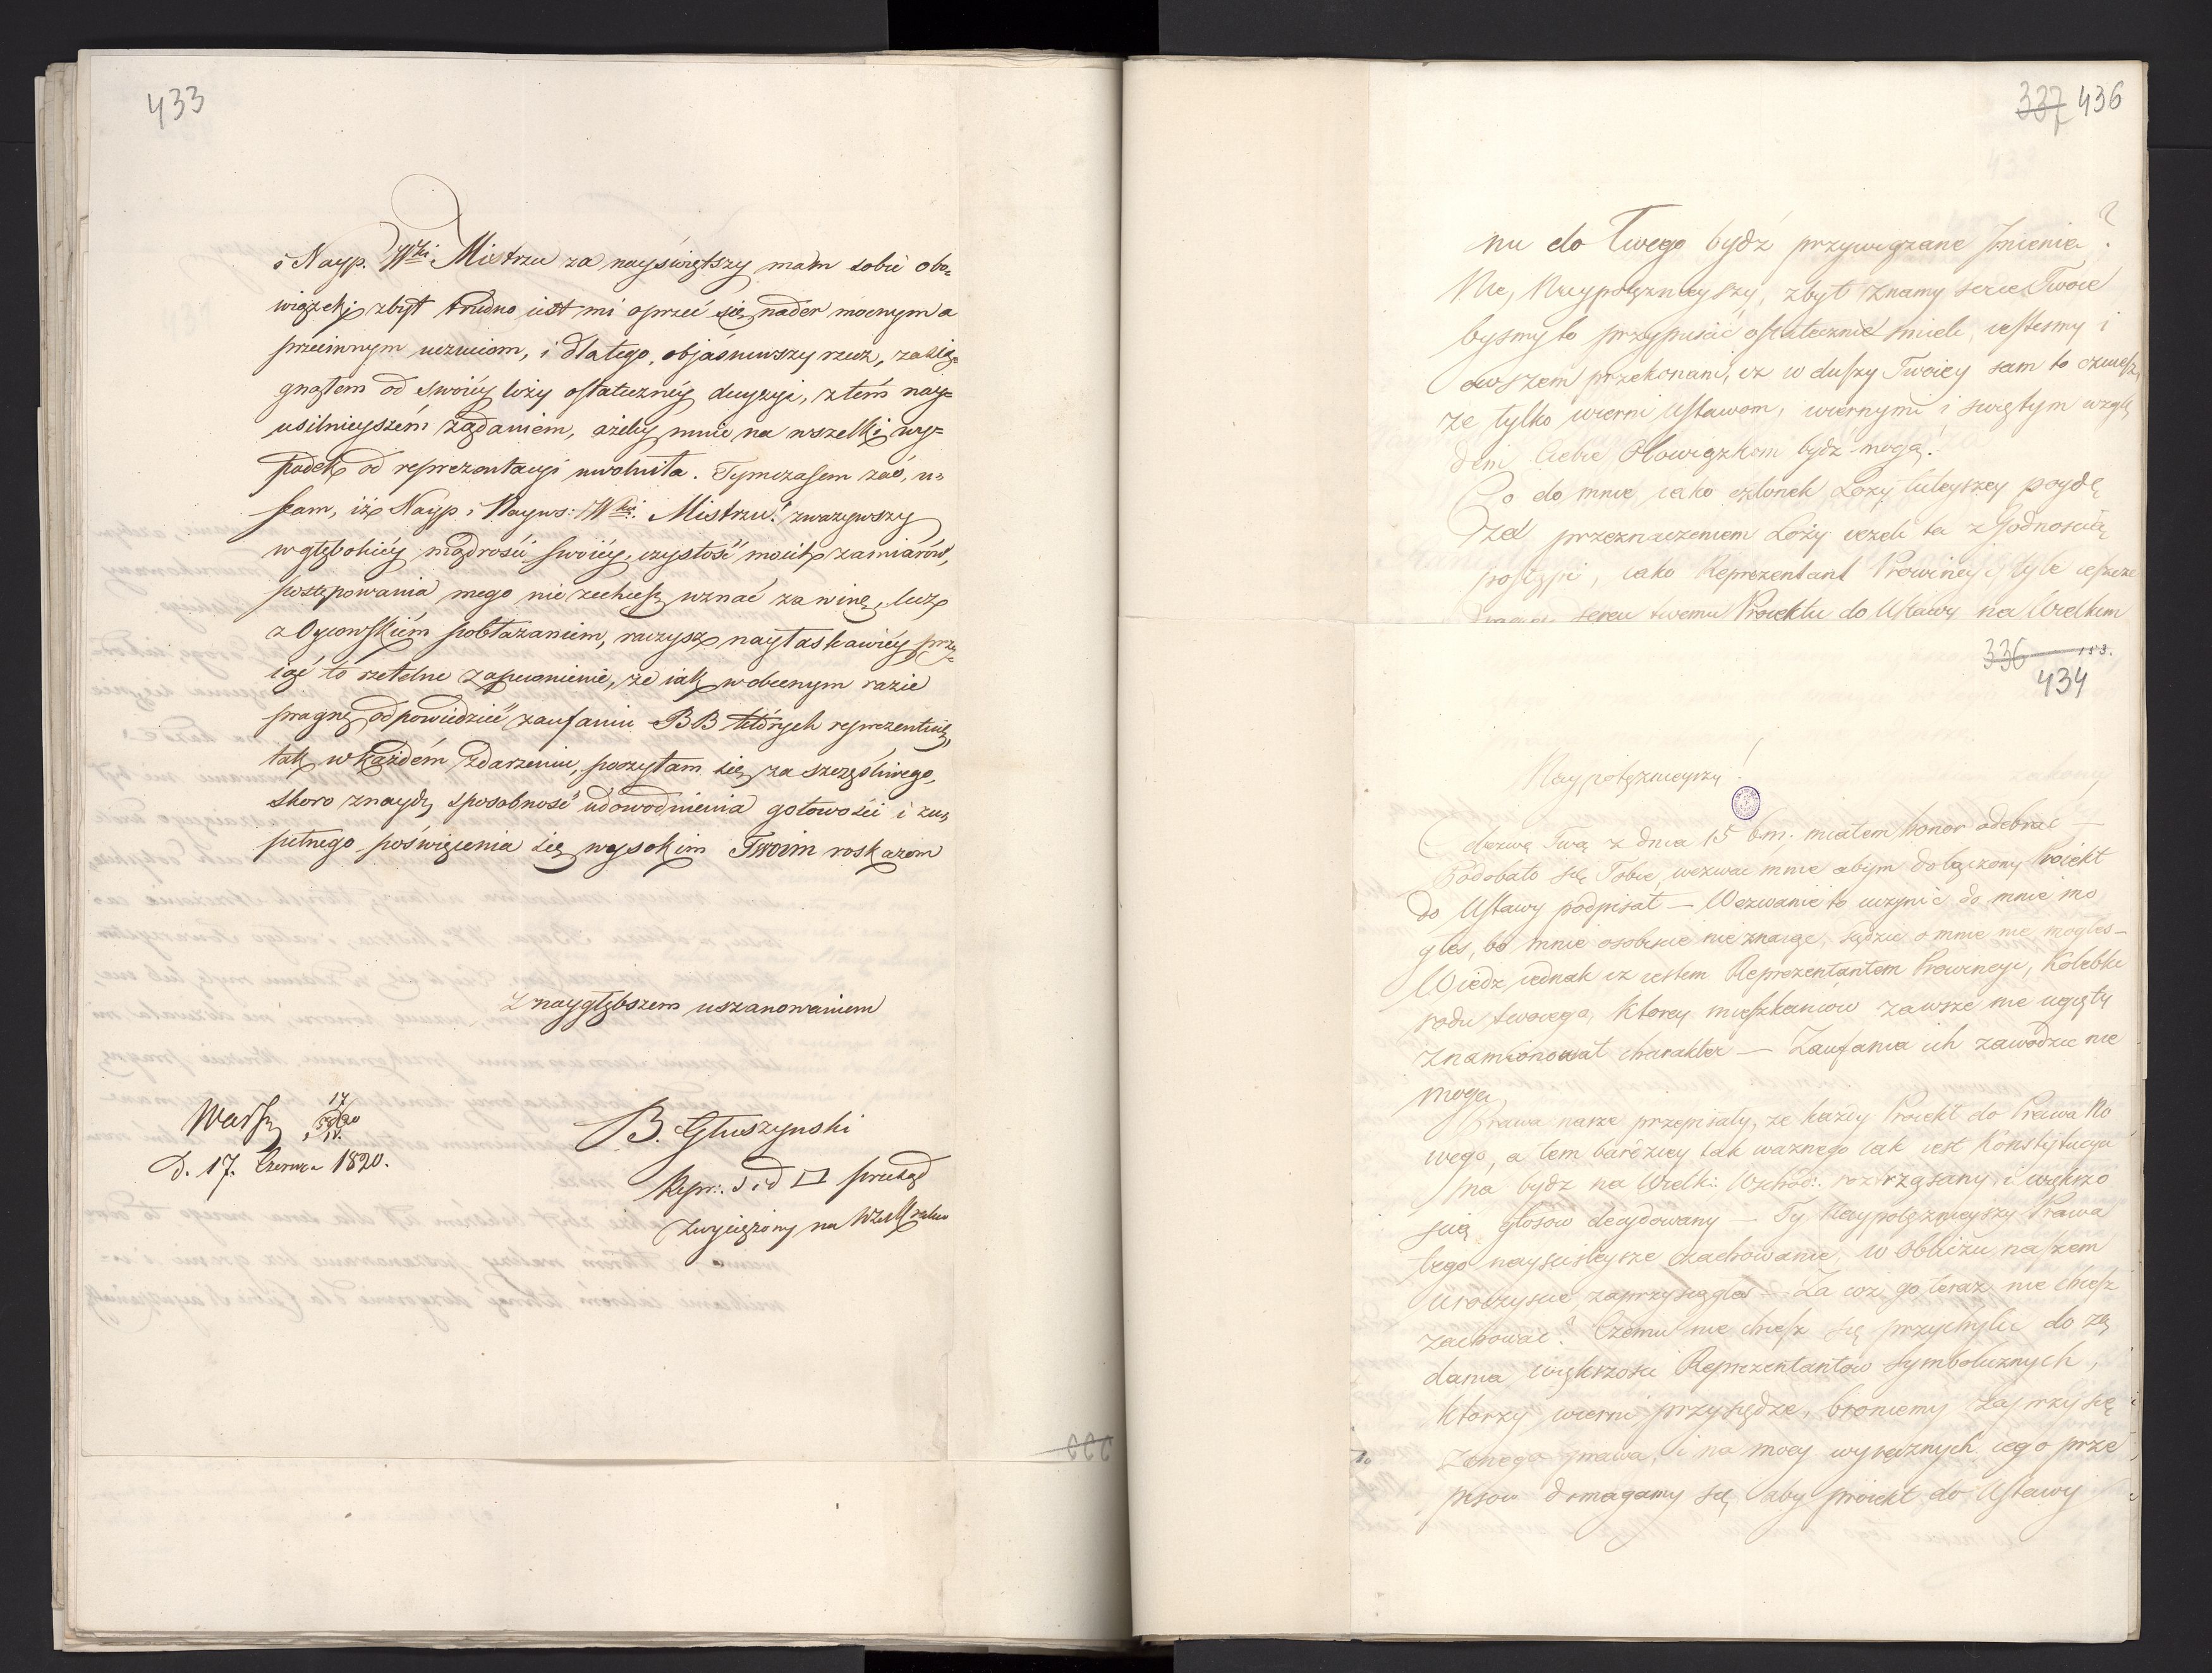 433
i Nayp. Wki Mistrzu za nayświętszy mam sobie obo=
wiązek; zbyt trudno iest mi oprzeć się nader mocnym a
przeciwnym uczuciom, i dlatego, objaśniwszy rzecz, zasią=
gnąłem od swoiéy loży ostatecznéy decyzyi, z tém nay=
usilnieyszém żądaniem, ażeby mnie na wszelki wy=
padek od reprezentacyi uwolniła. Tymczasem zaś, u=
fam, iż Nayp: i Nayws: Wki: Mistrzu! zważywszy
w głębokiéy mądrości swoiéy, czystość moich zamiarów,
postępowania mego nie zechcesz uznać za winę, lecz
z Oycowskiém pobłażaniem, raczysz nayłaskawiéy przy=
iąć to rzetelne zapewnienie, że iak w obecnym razie
pragnę odpowiedzieć zaufaniu BB których reprezentuię,
tak w każdém zdarzeniu, poczytam się za szczęśliwego,
skoro znaydę sposobność udowodnienia gotowości i zu=
pełnego poświęcenia się wysokim Twoim roskazom
z naygłębszem uszanowaniem
Warsz
d. 17. Czerwca 1820.
B. Głuszynski
Repr: S. i d □ przesąd
zwyciężony na W
337 436
nu do Twego bydź przywiązane Imienia?
Nie, Naypotężnieyszy, zbyt znamy serce Twoie
bysmy to przypuscić ostatecznie mieli, iestesmy i
owszem przekonani, iz w duszy Twoiey sam to czuiesz,
ze tylko wierni Ustawom, wiernymi i swiętym wzglę
dem Ciebie Obowiązkom bydź mogą!
Co do mnie iako członek Loży tuteyszey poydę
za przeznaczeniem Loży iezeli ta z Godnoscią
postąpi, iako Reprezentant Prowincyi tyle ieszcze
sercu twemu Proiektu do Ustawy na Wielkim
336 153.
434
Naypotężnieyszy!
Odezwę Twą z dnia 15 b.m. miałem honor odebrać —
Podobało się Tobie, wezwać mnie abym dołączony Proiekt
do Ustawy podpisał — Wezwanie to uczynić do mnie mo
głes, bo mnie osobiscie nie znaiąc, sądzic o mnie nie mogłes —
Wiedz iednak iz iestem Reprezentantem Prowincyi, Kolebki
rodu twoiego, Ktorey mieszkancow zawsze nie ugięty
znamionował charakter — Zaufania ich zawodzic nie
mogę
Prawa nasze przepisały, ze kazdy Proiekt do Prawa No
wego, a tem bardziey tak waznego iak iest Konstytucya
ma bydz na Wielki: Wschod: roztrząsany i większo
scią głosow decydowany — Ty Naypotężnieyszy Prawa
tego nayscisleysze zachowanie, w obliczu naszem
uroczyscie zaprzysiągłes — Za coz go teraz nie chcesz
zachowac? Czemu nie chcesz się przychylic do ząą
dania większosci Reprezentantow symbolicznych,
Ktorzy wierni przysiędze, broniemy zaprzysię
zonego prawa, i na mocy wyraznych iego prze
pisow domagamy się aby proiekt do Ustawy